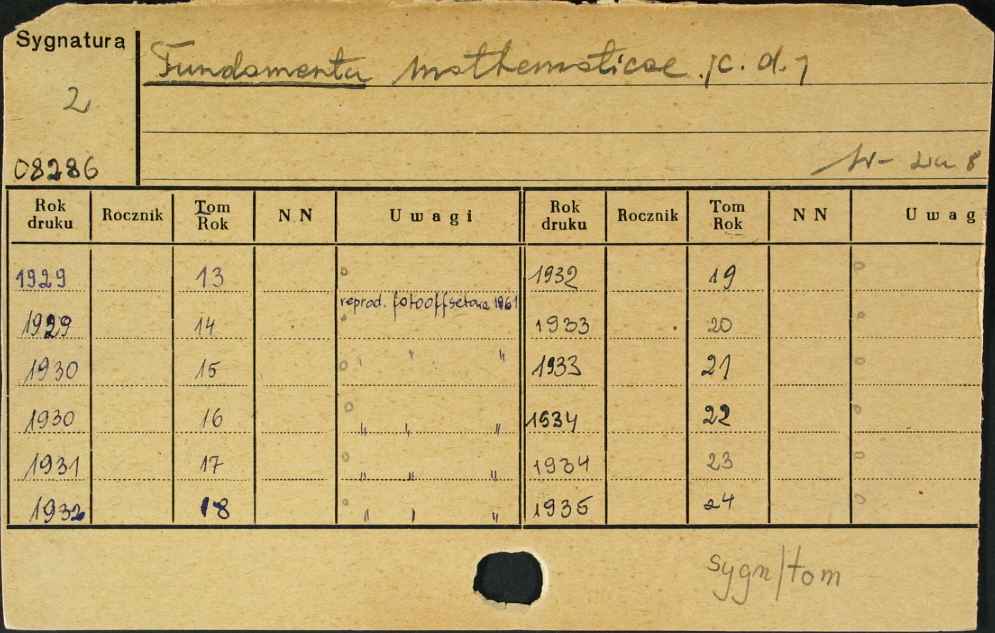 Sygnatura
Fundamenta mathematicae /c. d./
2
08286
Rok druku Rocznik Tom Rok N N Uwagi Rok druku Rocznik Tom Rok N N Uwag
1929 13 1932 19
reprod. fotooffsetowa 1961
1929 14 1933 20
1930 15 " " 1933 21
1930 16 " " " 1934 22
1931 17 " " " 1934 23
1932 18 " " " 1935 24
sygn/tom